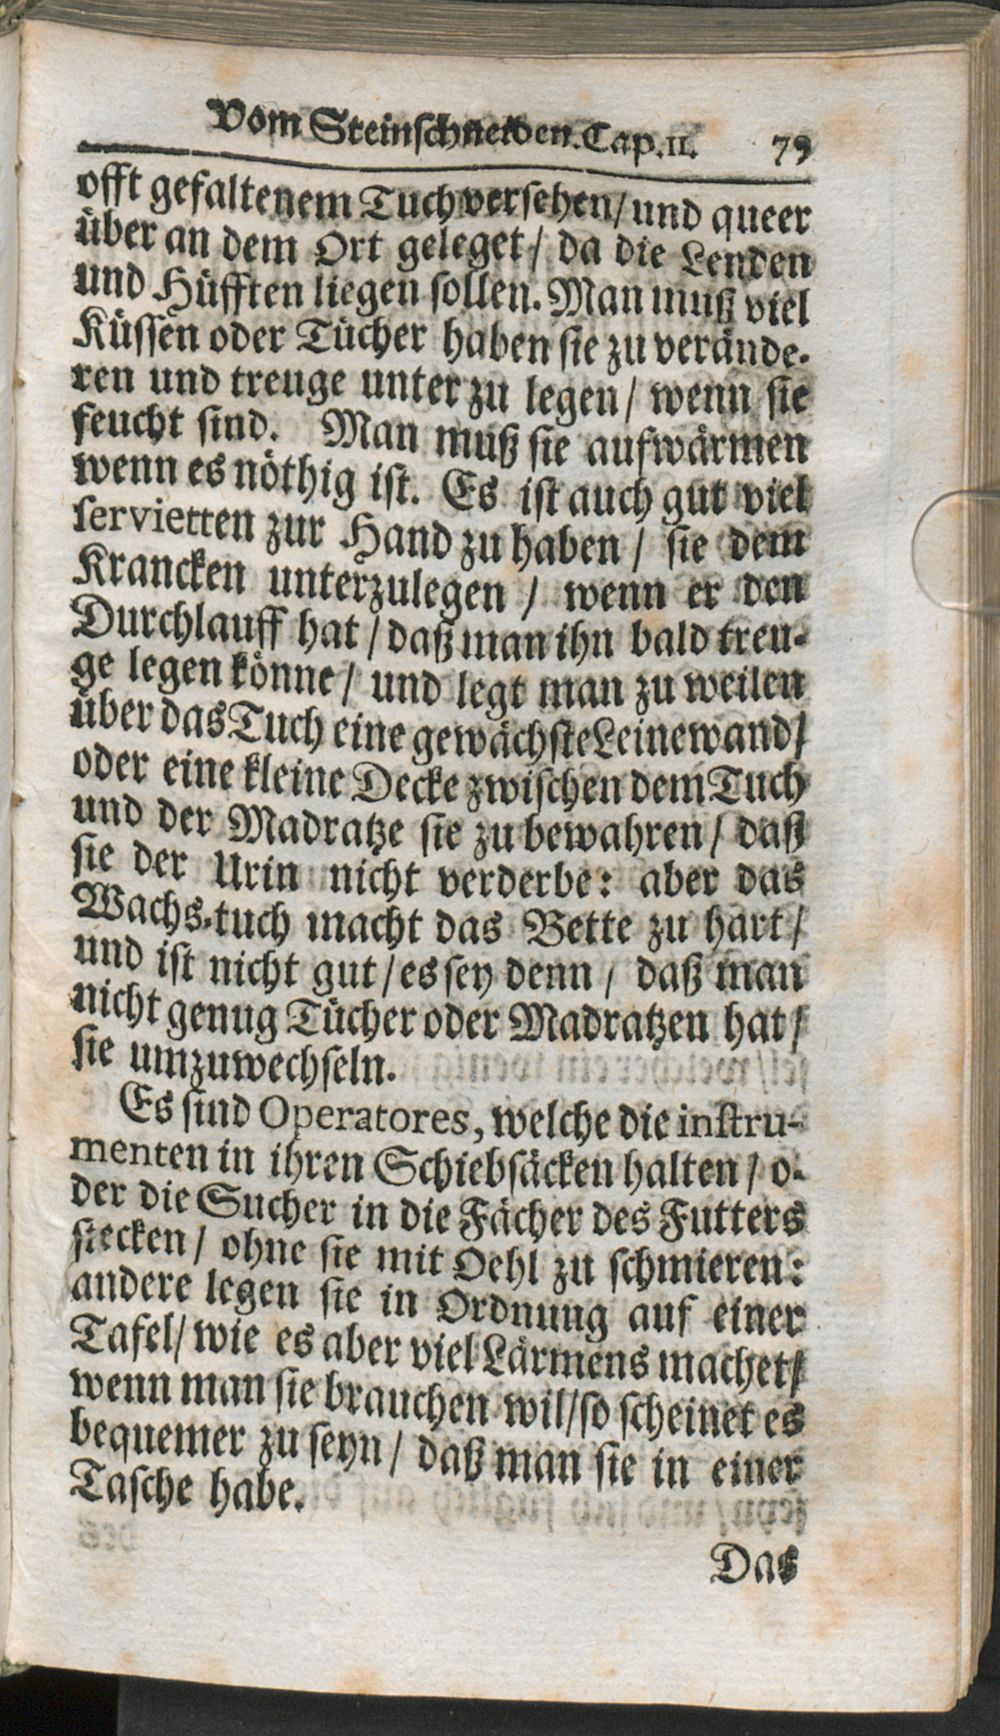 Vom Steinschneiden. Cap. II. 79
offt gefaltenem Tuch versehen/ und queer
über an dem Ort geleget/ da die Lenden
und Hüfften liegen sollen. Man muß viel
Küssen oder Tücher haben sie zu verände-
ren und treuge unter zu legen/ wenn sie
feucht sind. Man muß sie aufwärmen
wenn es nöthig ist. Es ist auch gut viel
servietten zur Hand zu haben/ sie dem
Krancken unterzulegen/ wenn er den
Durchlauff hat/ daß man ihn bald treu-
ge legen könne/ und legt man zu weilen
über das Tuch eine gewächste Leinewand/
oder eine kleine Decke zwischen dem Tuch
und der Madratze sie zu bewahren/ daß
sie der Urin nicht verderbe: aber das
Wachs-tuch macht das Bette zu hart/
und ist nicht gut/ es sey denn/ daß man
nicht genug Tücher oder Madratzen hat/
sie umzuwechseln.
Es sind Operatores, welche die instru-
menten in ihren Schiebsäcken halten/ o-
der die Sucher in die Fächer des Futters
stecken/ ohne sie mit Oehl zu schmieren:
andere legen sie in Ordnung auf einer
Tafel/ wie es aber viel Lärmens machet/
wenn man sie brauchen wil/ so scheinet es
bequemer zu seyn/ daß man sie in einer
Tasche habe.
Das